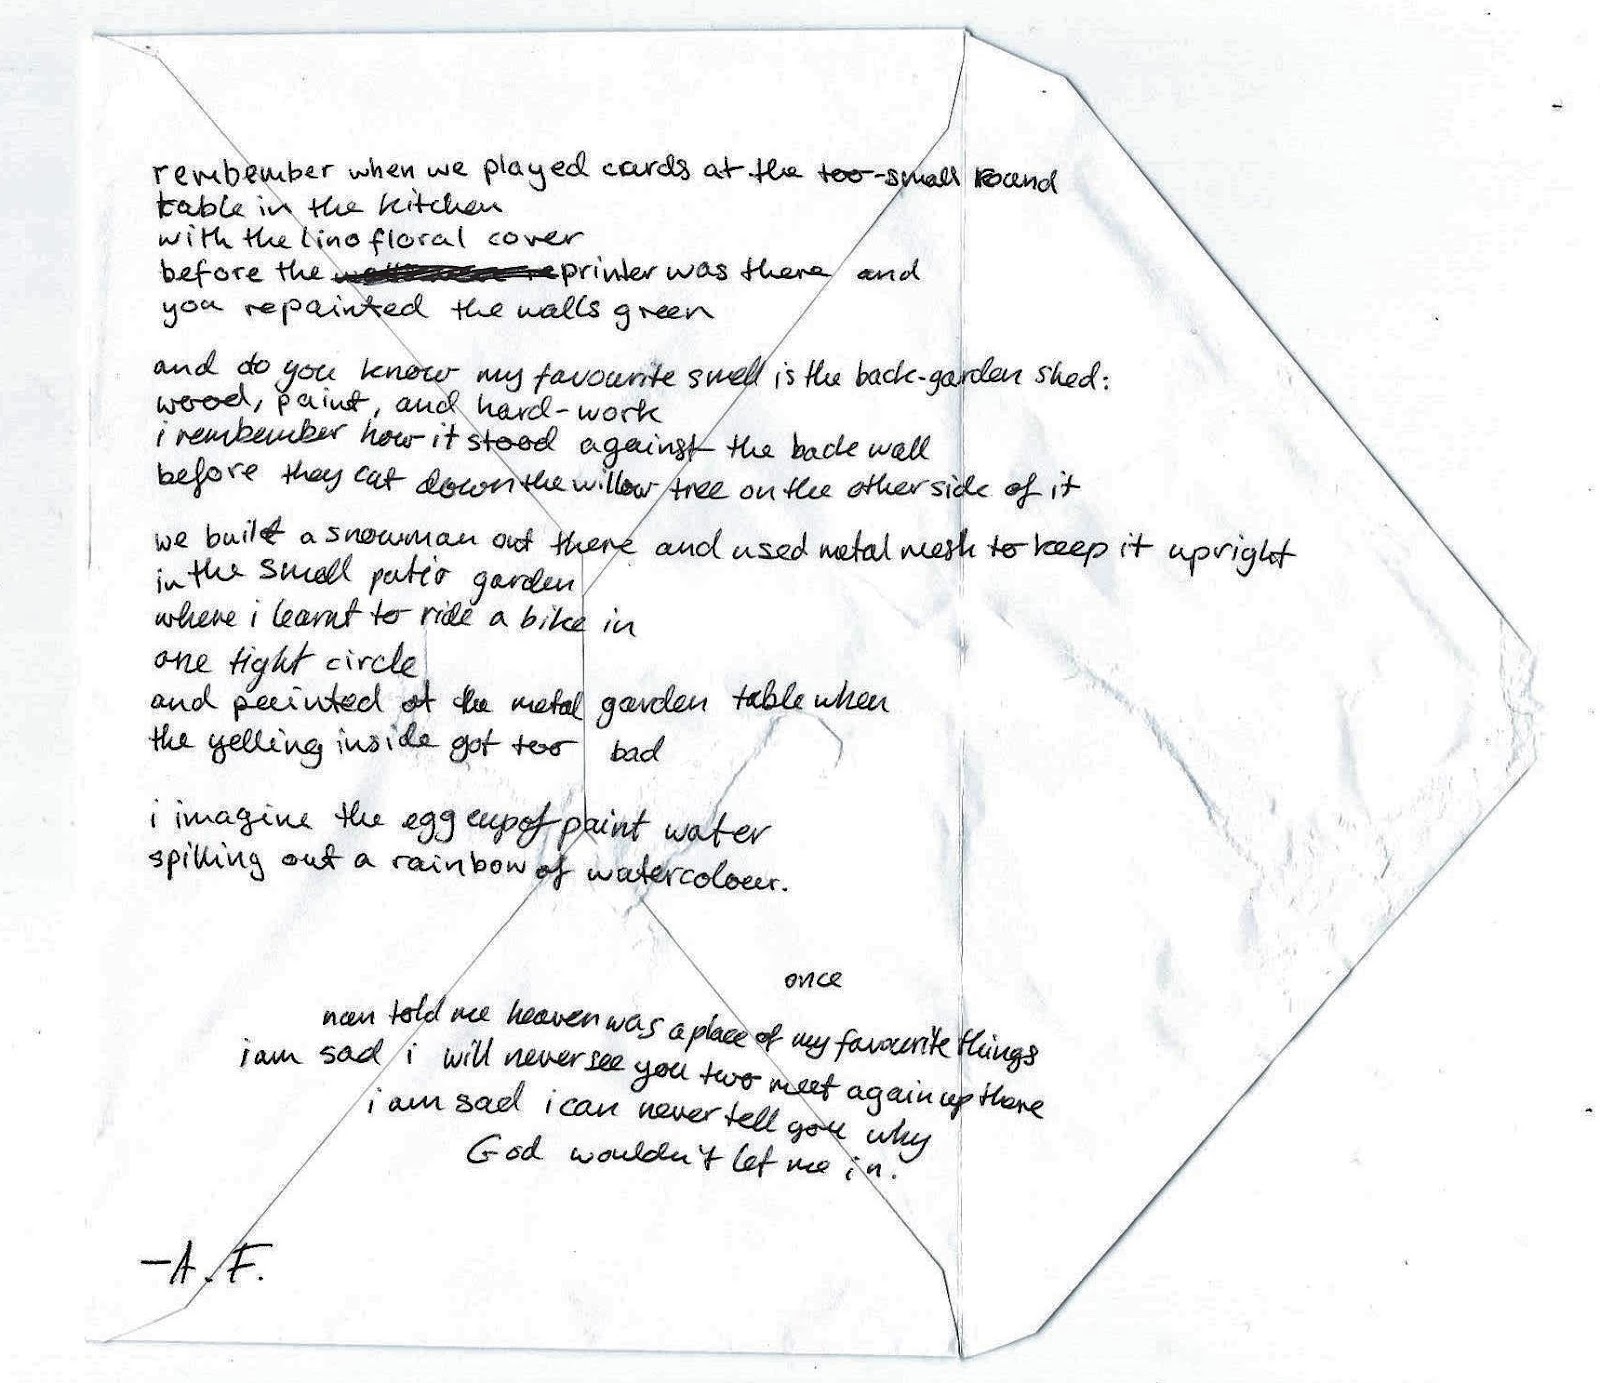 rembember when we played cards at the too-small round
table in the kitchen
with the lino floral cover
before the printer was there and
you repainted the walls green
and do you know my favourite smell is the back-garden shed:
wood, paint, and hard-work
i rembember how it stood against the back wall
before they cut down the willow tree on the other side of it
we built a snowman out there and used metal mesh to keep it upright
in the small patio garden
where i learnt to ride a bike in
one tight circle
and painted at the metal garden table when
the yelling inside got too bad
i imagine the egg cup of paint water
spilling out a rainbow of watercolour.
once
nan told me heaven was a place of my favourite things
i am sad i will never see you two meet again up there
i am sad i can never tell you why
God wouldn't let me in.
—A.F.